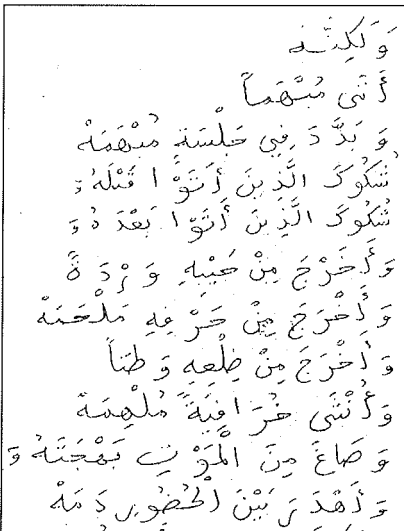 وَلَكِنَّهُ
أَتَى مُبْهَماً
وَ بَدَّدَ فِي جَلْسَةٍ مُبْهَمَهْ
شُكُوكَ الَّذِينَ أَتَوْا قَبْلَهُ وَ
شُكُوكَ الَّذِينَ أَتَوْا بَعْدَهُ وَ
وَأَخْرَجَ مِنْ جَيْبِهِ وَرْدَةً
وَأَخْرَجَ مِنْ حَرْفِهِ مَلْحَمَهْ
وَأَخْرَجَ مِنْ ضِلْعِهِ وَطَناً
وَأُنْثَى خُرَافِيَّةً مُلْهِمَهْ
وَ صَاغَ مِنَ الْمَوْتِ بَهْجَتَهُ وَ
وَأَهْدَرَ بَيْنَ الْحُضُورِ دَمَهْ